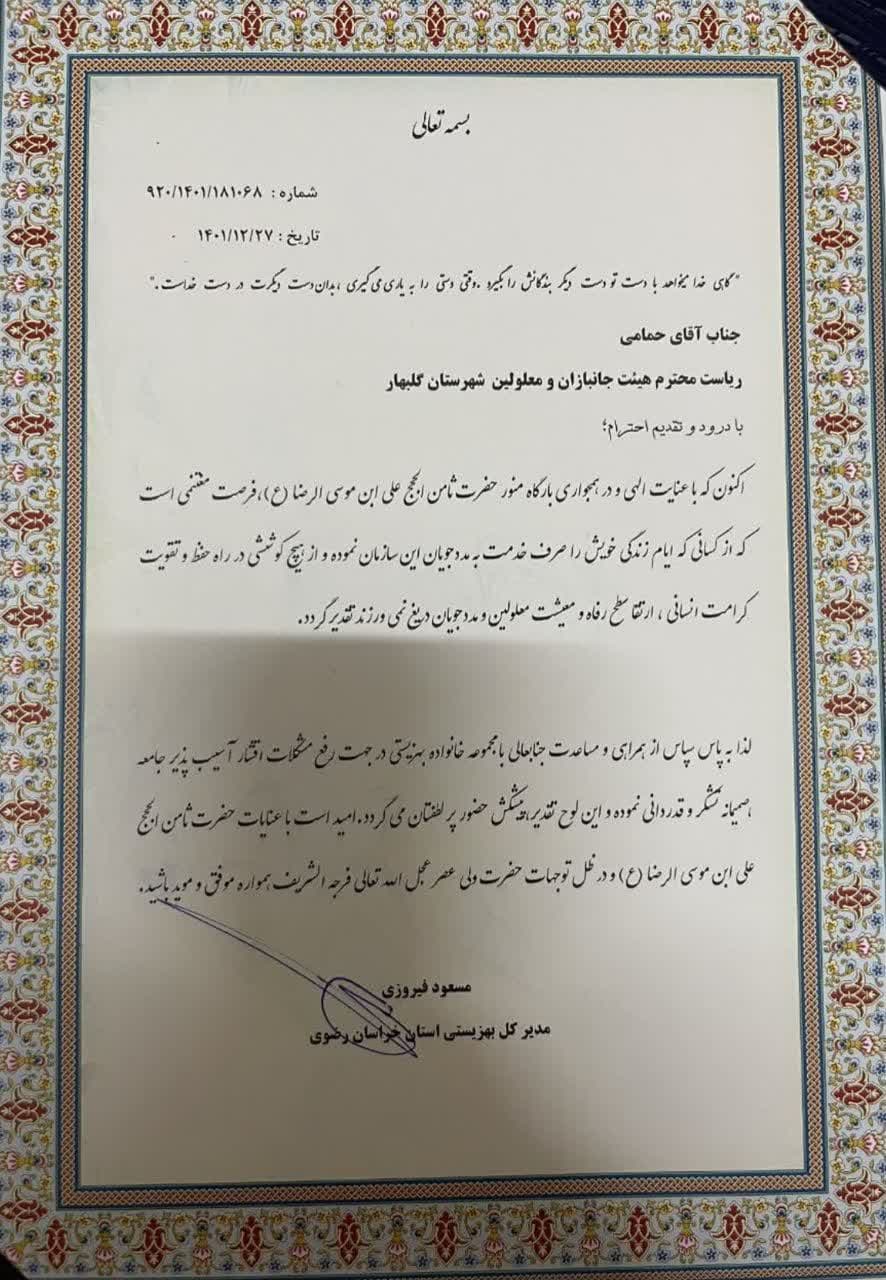 بسمه تعالی
شماره : ۹۲۰/۱۴۰۱/۱۸۱۰۶۸
تاریخ : ۱۴۰۱/۱۲/۲۷
"گاهی خدا میخواهد با دست تو دست دیگر بندگانش را بگیرد .وقتی دستی را به یاری می گیری ،بدان دست دیگرت در دست خداست."
جناب آقای حمامی
ریاست محترم هیئت جانبازان و معلولین شهرستان گلبهار
با درود و تقدیم احترام؛
اکنون که با عنایت الهی و در همجواری بارگاه منور حضرت ثامن الحجج علی ابن موسی الرضا (ع)،فرصت مغتنمی است
که از کسانی که ایام زندگی خویش را صرف خدمت به مددجویان این سازمان نموده و از هیچ کوششی در راه حفظ و تقویت
کرامت انسانی ، ارتقا سطح رفاه و معیشت معلولین و مددجویان دریغ نمی ورزند تقدیر گردد.
لذا به پاس سپاس از همراهی و مساعدت جنابعالی با مجموعه خانواده بهزیستی در جهت رفع مشکلات اقشار آسیب پذیر جامعه
،صمیمانه تشکر و قدردانی نموده و این لوح تقدیر، پیشکش حضور پر لطفتان می گردد.امید است با عنایات حضرت ثامن الحجج
علی ابن موسی الرضا (ع) و در ظل توجهات حضرت ولی عصر عجل الله تعالی فرجه الشریف همواره موفق و موید باشید.
مسعود فیروزی
مدیر کل بهزیستی استان خراسان رضوی